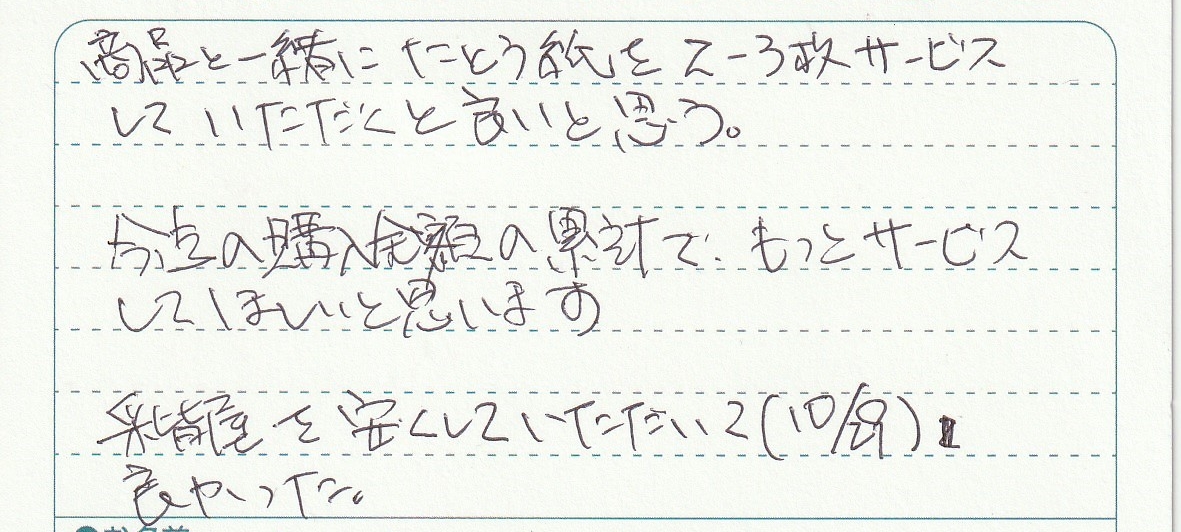 商品と一緒に たとう紙を2-3枚サービス
していただだくと良いと思う。
今迄の購入金額の累計で、もっとサービス
してほしいと思います
を安くしていただいて(10/29)
良かった。